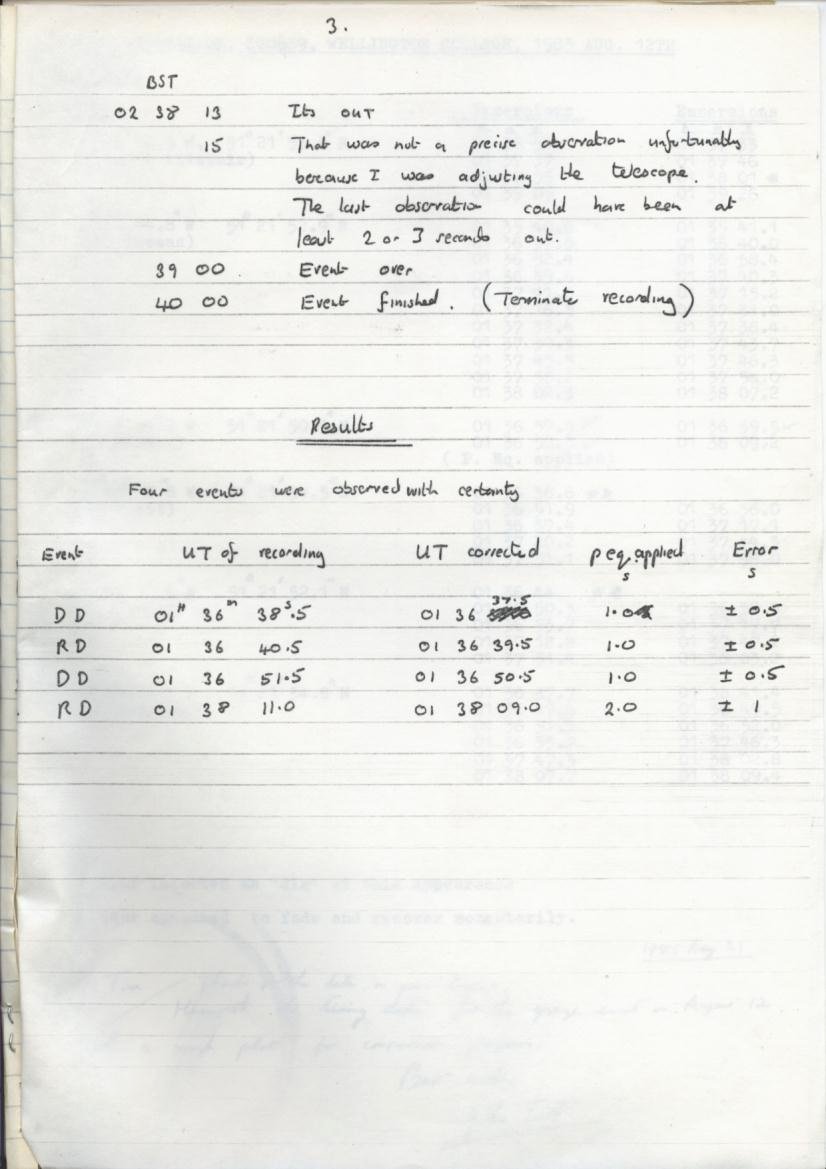 3.
BST
02 38 13 Its out
15 That was not a precise observation unfortunably
because I was adjusting the telescope.
The last observation could have been at
least 2 or 3 seconds out.
39 00 Event over
40 00 Event finished. (Terminate recording)
Results
Four events were observed with certainty
Event UT of recording UT corrected p eq. applied Error
s s
DD 01H 36m 38s.5 01 36 37.5 1.0 ± 0.5
RD 01 36 40.5 01 36 39.5 1.0 ± 0.5
DD 01 36 51.5 01 36 50.5 1.0 ± 0.5
RD 01 38 11.0 01 38 09.0 2.0 ± 1